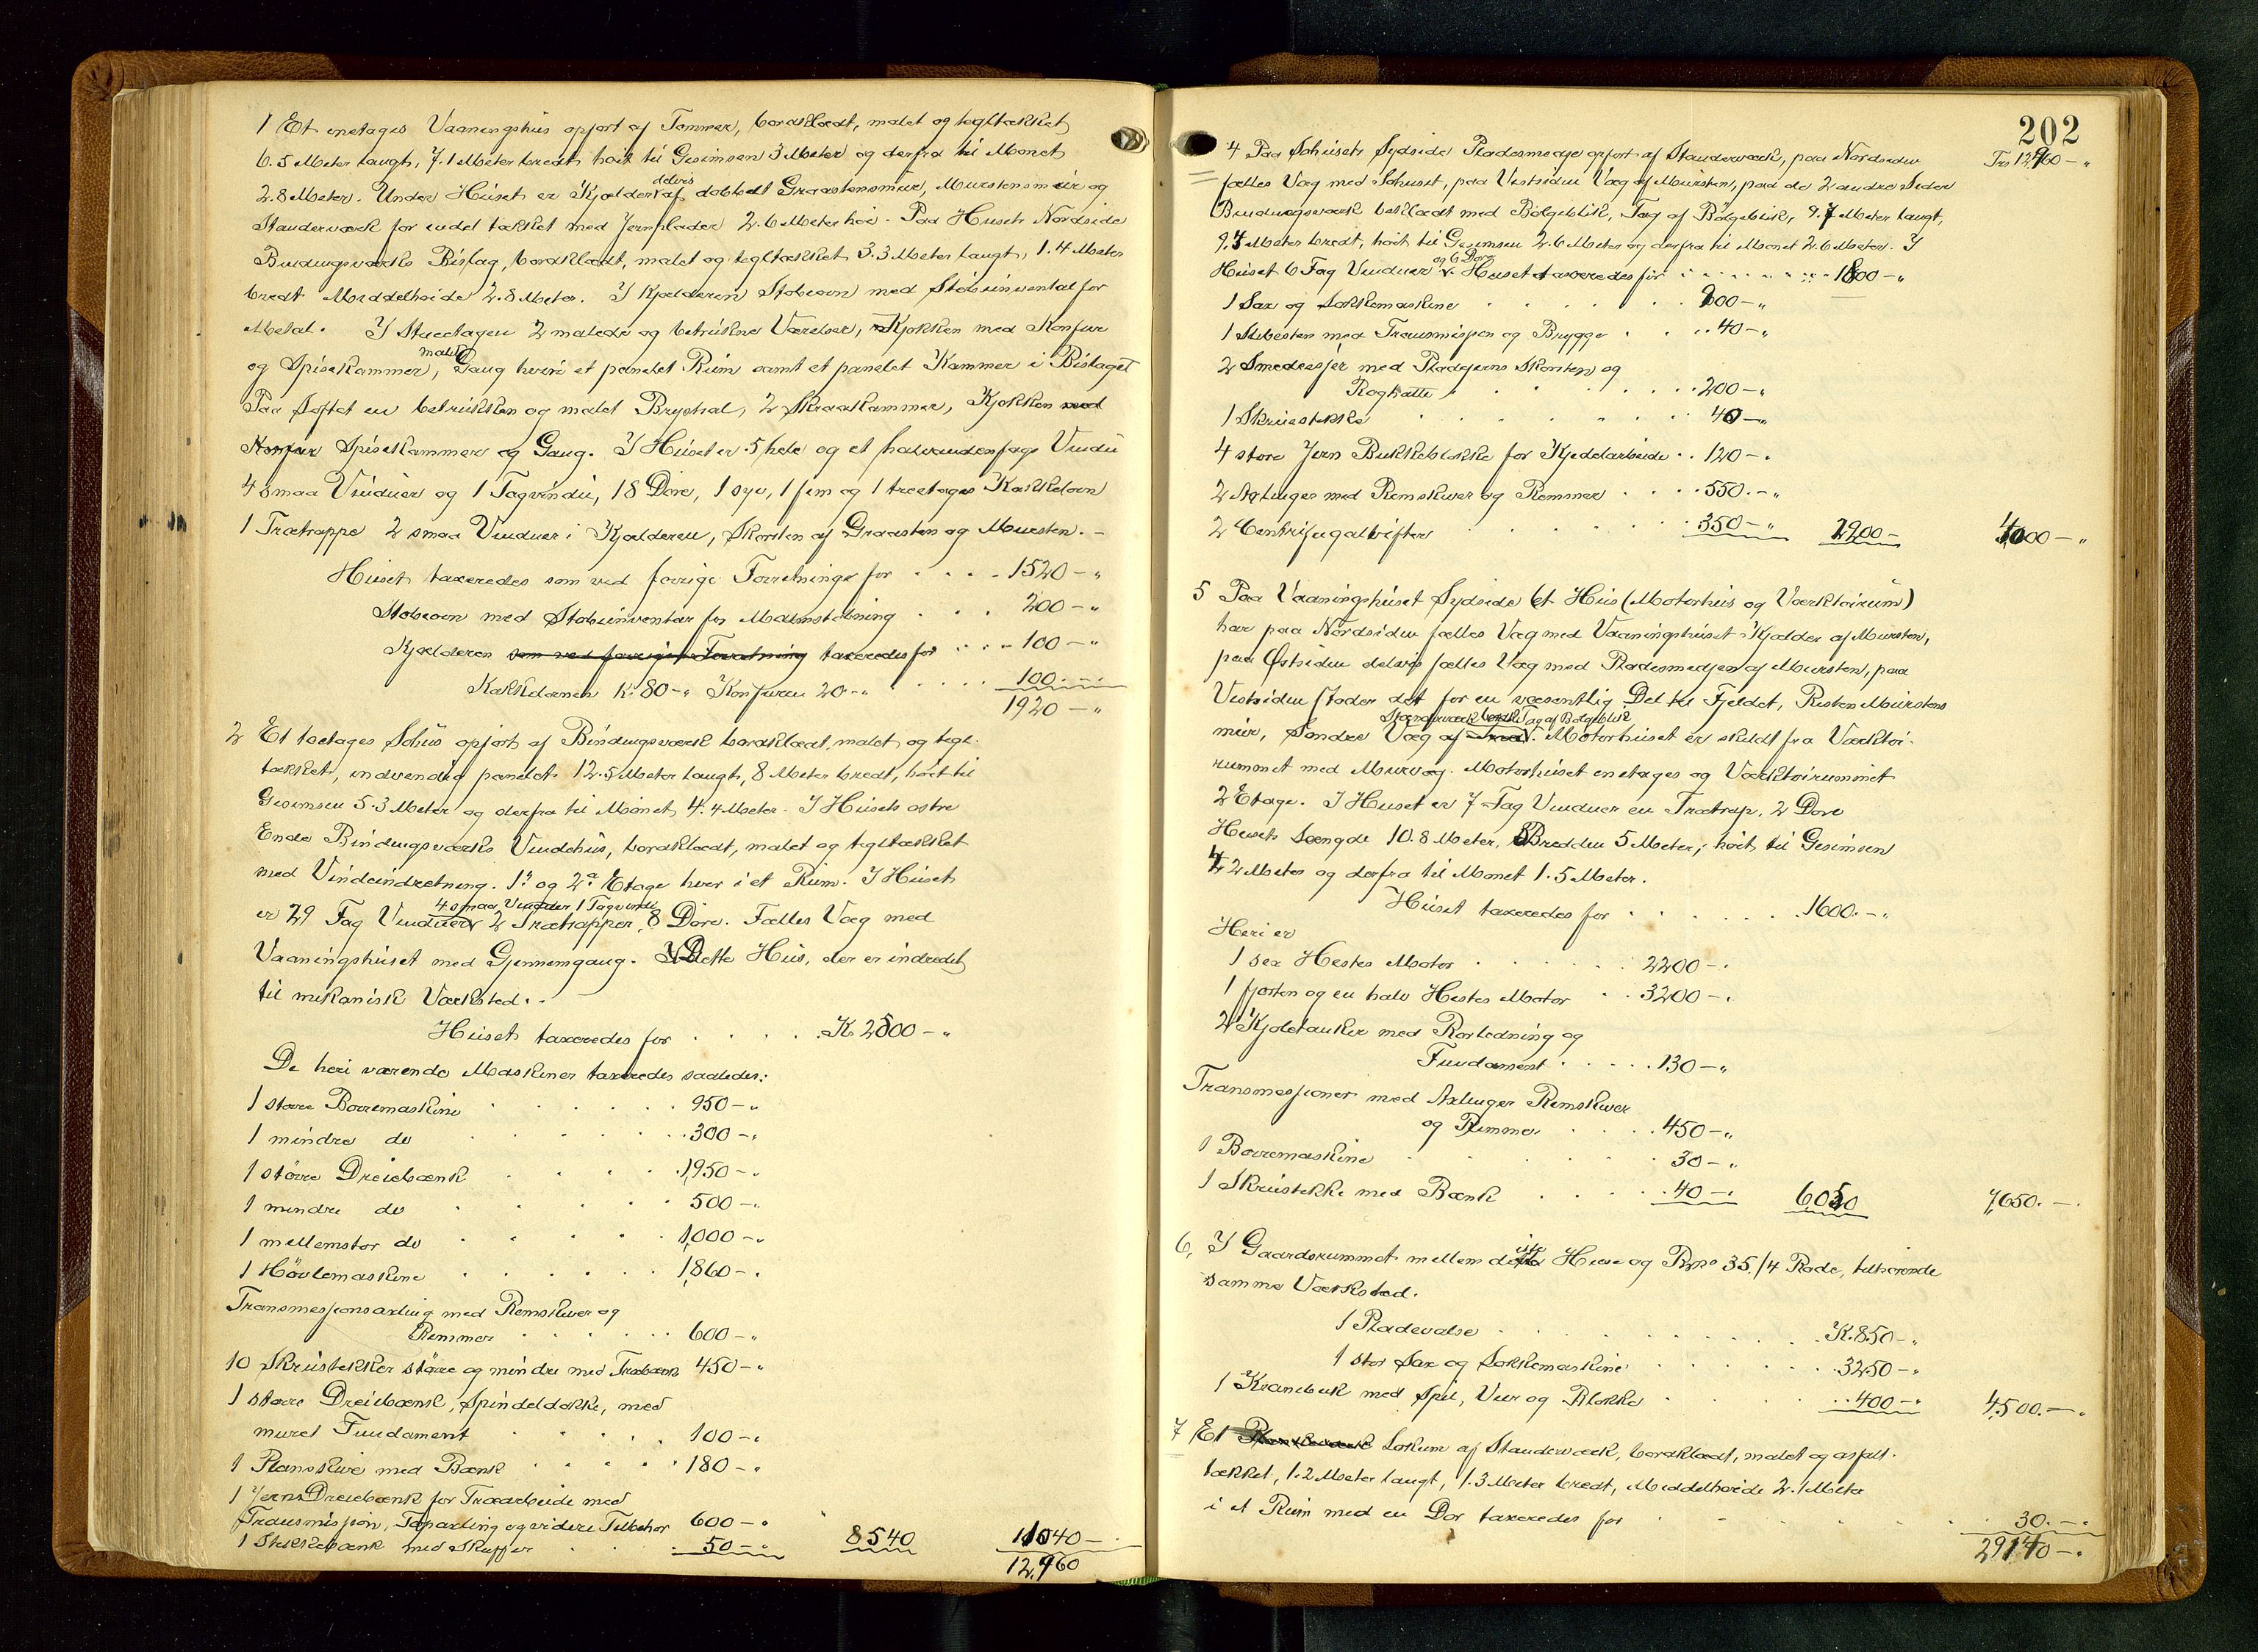 1 Et enetages Vaaningshus opført af Tømmer, bordklædt, malet og tegltækket
6.5 Meter langt, 7.1 Meter bredt høit til Gesimsen 3 Meter og derfra til Mønet
2.8 Meter. Under Huset er Kjælder delvis af dobbelt Graastensmur, Murstensmur og
Standerværk for endel tækket med Jernplader 2.6 Meter høi. Paa Husets Nordside
Bindingsværks Bislag, bordklædt, malet og tegltækket 3.3 Meter langt, 1.4 Meter
bredt Middelhøide 2.8 Meter. I Kjælderen Støbeovn med Støbeinventar for
Metal. I Stueetagen 2 malede og betrukne Værelser, Kjøkken med Komfur
og Spisekammer, malet Gang hvori et panelet Rum samt et panelet Kammer i Bislaget
Paa Loftet en betrukken og malet Brystsal, 2 Skraakammer, Kjøkken med
Komfur Spisekammer og Gang. I Huset er 5 hele og et halvandenfags Vindu
4 smaa Vinduer og 1 Tagvindu, 18 Døre, 1 syv, 1 fem og 1 treetages Kakkelovn
1 Trætrappe 2 smaa Vinduer i Kjælderen, Skorsten af Graasten og Mursten. -
Huset taxeredes som ved forrige Forretninge for . . . . 1520 - "
Støbeovn med Støbeinventar for Malmstøbning . . . 200 - "
Kjælderen som ved forrige Forretning taxeredes for . . . 100 - "
Kakkelovnen K. 80 - " Komfuren 20 - " . . . . 100 . - . -
1920 - "
2 Et toetages Søhus opført af Bindingsværk bordklædt, malet og tegl-
tækket, indvendig panelet 12.5 Meter langt, 8 Meter bredt, høit til
Gesimsen 5.3 Meter og derfra til Mønet 4.4 Meter. I Husets østre
Ende Bindingsværks Vindehus, bordklædt, malet og tegltækket
med Vindeindretning. 1ste og 2den Etage hver i et Rum. I Huset
er 29 Fag Vinduer 4 smaa Vinduer 1 Tagvindu 2 Trætrapper, 8 Døre. Fælles Væg med
Vaaningshuset med Gjennemgang. Dette Hus, der er indredet
til mekanisk Værksted. -
Huset taxeredes for . . . . . K. 2500 - "
De heri værende Maskiner taxeredes saaledes:
1 større Borremaskine . . . . . 950 - "
1 mindre do . . . . . 300 - "
1 større Dreiebænk . . . . 1,950 - "
1 mindre do . . . . 500 - "
1 mellemstor do . . . . 1,000 - "
1 Høvlemaskine . . . . . 1,860 - "
Transmissionsaxling med Remskiver og
Remmer . . . . . 600 - "
10 Skruestikker større og mindre med Træbænk 450 - "
1 større Dreiebænk, Spindeldokke, med
muret Fundament . . . . 100 - "
1 Planskive med Bænk . . . . 180 - "
1 Jern Dreiebænk for Træarbeide med
Transmission, Tapaxling og videre Tilbehør 600 - "
1 Stikkebænk med Skuffer . . . 50 - " 8540 11040 -
12,960
202
4 Paa Søhusets Sydside Pladesmedje opført af Standerværk, paa Nordsiden Trs 12,960 - "
fælles Væg med Søhuset, paa Vestsiden Væg af Mursten, paa de 2 andre Sider
Bindingsværk beklædt med Bølgeblik, Tag af Bølgeblik, 9.7 Meter langt,
9.4 Meter bredt, høit til Gesimsen 2.6 Meter og derfra til Mønet 2.6 Meter. I
Huset 6 Fag Vinduer og 6 Døre. Huset taxeredes for . . . . . 1800 - "
1 Sax og Lokkemaskine . . . . . 900 - "
1 Slibesten med Transmission og Brygge . . 40 - "
2 Smedeesjer med Pladejerns Skorsten og
Røghætte . . . . . . 200 - "
1 Skruestikke . . . . . . 40 - "
4 store Jern Bukkeblokke for Kjedelarbeide . . 120 - "
2 Axlinger med Remskiver og Remmer . . . . 550. - "
2 Centrifugalvifter . . . . . 350 - " 2200 - 4,000 - "
5 Paa Vaaningshuset Sydside Et Hus (Motorhus og Værktøirum)
har paa Nordsiden fælles Væg med Vaaningshuset Kjælder af Mursten,
paa Østsiden delvis fælles Væg med Pladesmedjen af Mursten, paa
Vestsiden støder det for en væsentlig Del til Fjeldet, Resten Murstens
mur, Søndre Væg af Standerværk bordkl Tag af Bølgeblik. Motorhuset er skildt fra Værktøi-
rummet med Murvæg. Motorhuset enetages og Værktøirummet
2 Etage. I Huset er 7 Fag Vinduer en Trætrap, 2 Døre
Husets Længde 10.8 Meter, Bredden 5 Meter; høit til Gesimsen
4.2 Meter og derfra til Mønet 1.5 Meter.
Huset taxeredes for . . . . . . . 1600. - "
Heri er
1 sex Hestes Motor . . . . . 2200 - "
1 fjorten og en halv Hestes Motor . . 3200 - "
2 Kjøletanker med Rørledning og
Fundament . . . . . 130 - "
Transmissioner med Axlinger Remskiver
og Remmer . . . . 450 - "
1 Borremaskine . . . . . . 30 - "
1 Skruestikke med Bænk . . . . 40 - " 6,050 7,650. - "
6, I Gaardsrummet mellem disse Huse og Brno 35./4 Rode, tilhørende
samme Værksted.
1 Pladevalse . . . . . . . . K. 850 - "
1 stor Sax og Lokkemaskine . . . . . 3250 - "
1 Kranbuk med Spil, Vier og Blokke . . . . . 400 - " 4,500. - "
7 Et Lokum af Standerværk, bordklædt, malet og asfalt-
tækket, 1.2 Meter langt, 1.3 Meter bredt, Middelhøide 2.1 Meter
i et Rum med en Dør taxeredes for . . . . . . 30. - "
29140 - "